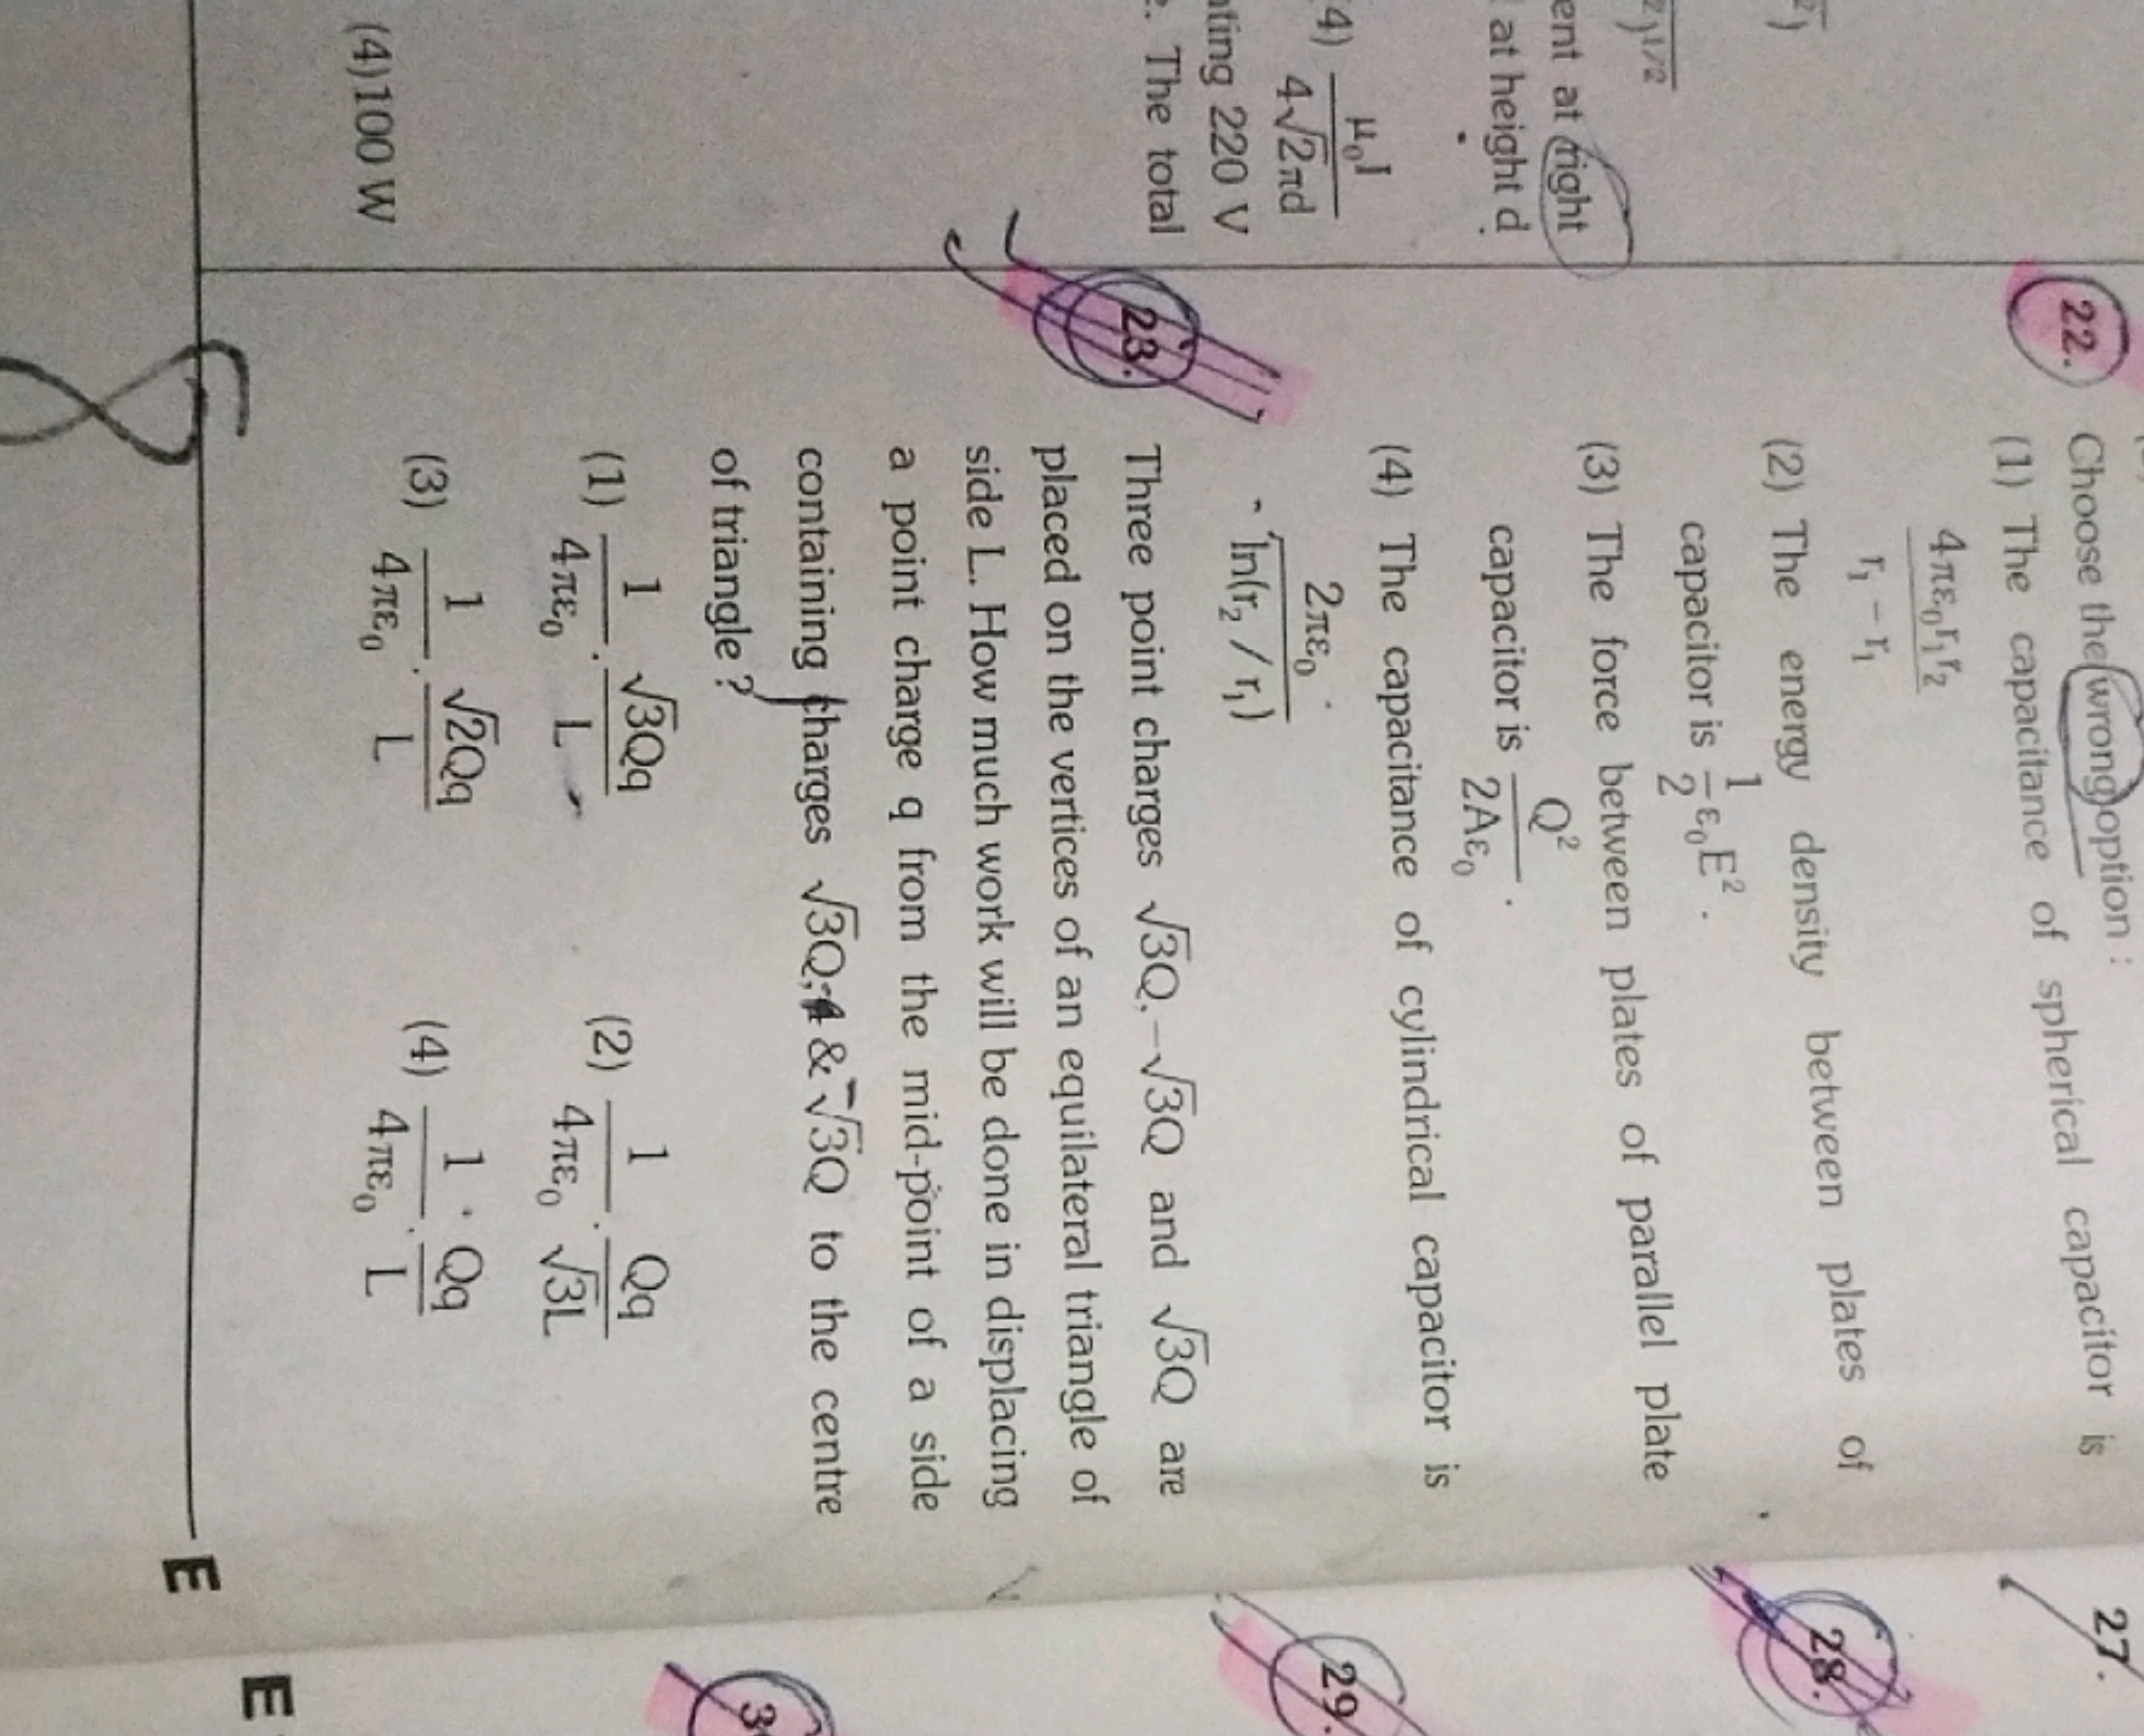 ent at right
at height d
4) μ₀I / 4√2πd
ting 220 V
. The total
(4) 100 W
22. Choose the wrong option :
(1) The capacitance of spherical capacitor is
4πε₀r₁r₂ / r₁ − r₁
(2) The energy density between plates of
capacitor is 1/2 ε₀E².
(3) The force between plates of parallel plate
capacitor is Q² / 2Aε₀.
(4) The capacitance of cylindrical capacitor is
2πε₀ / ln(r₂ / r₁).
23. Three point charges √3Q, −√3Q and √3Q are
placed on the vertices of an equilateral triangle of
side L. How much work will be done in displacing
a point charge q from the mid-point of a side
containing charges √3Q, & −√3Q to the centre
of triangle ?
(1) 1/4πε₀ . √3Qq/L (2) 1/4πε₀ . Qq/√3L
(3) 1/4πε₀ . √2Qq/L (4) 1/4πε₀ . Qq/L
E
27.
28.
29.
E